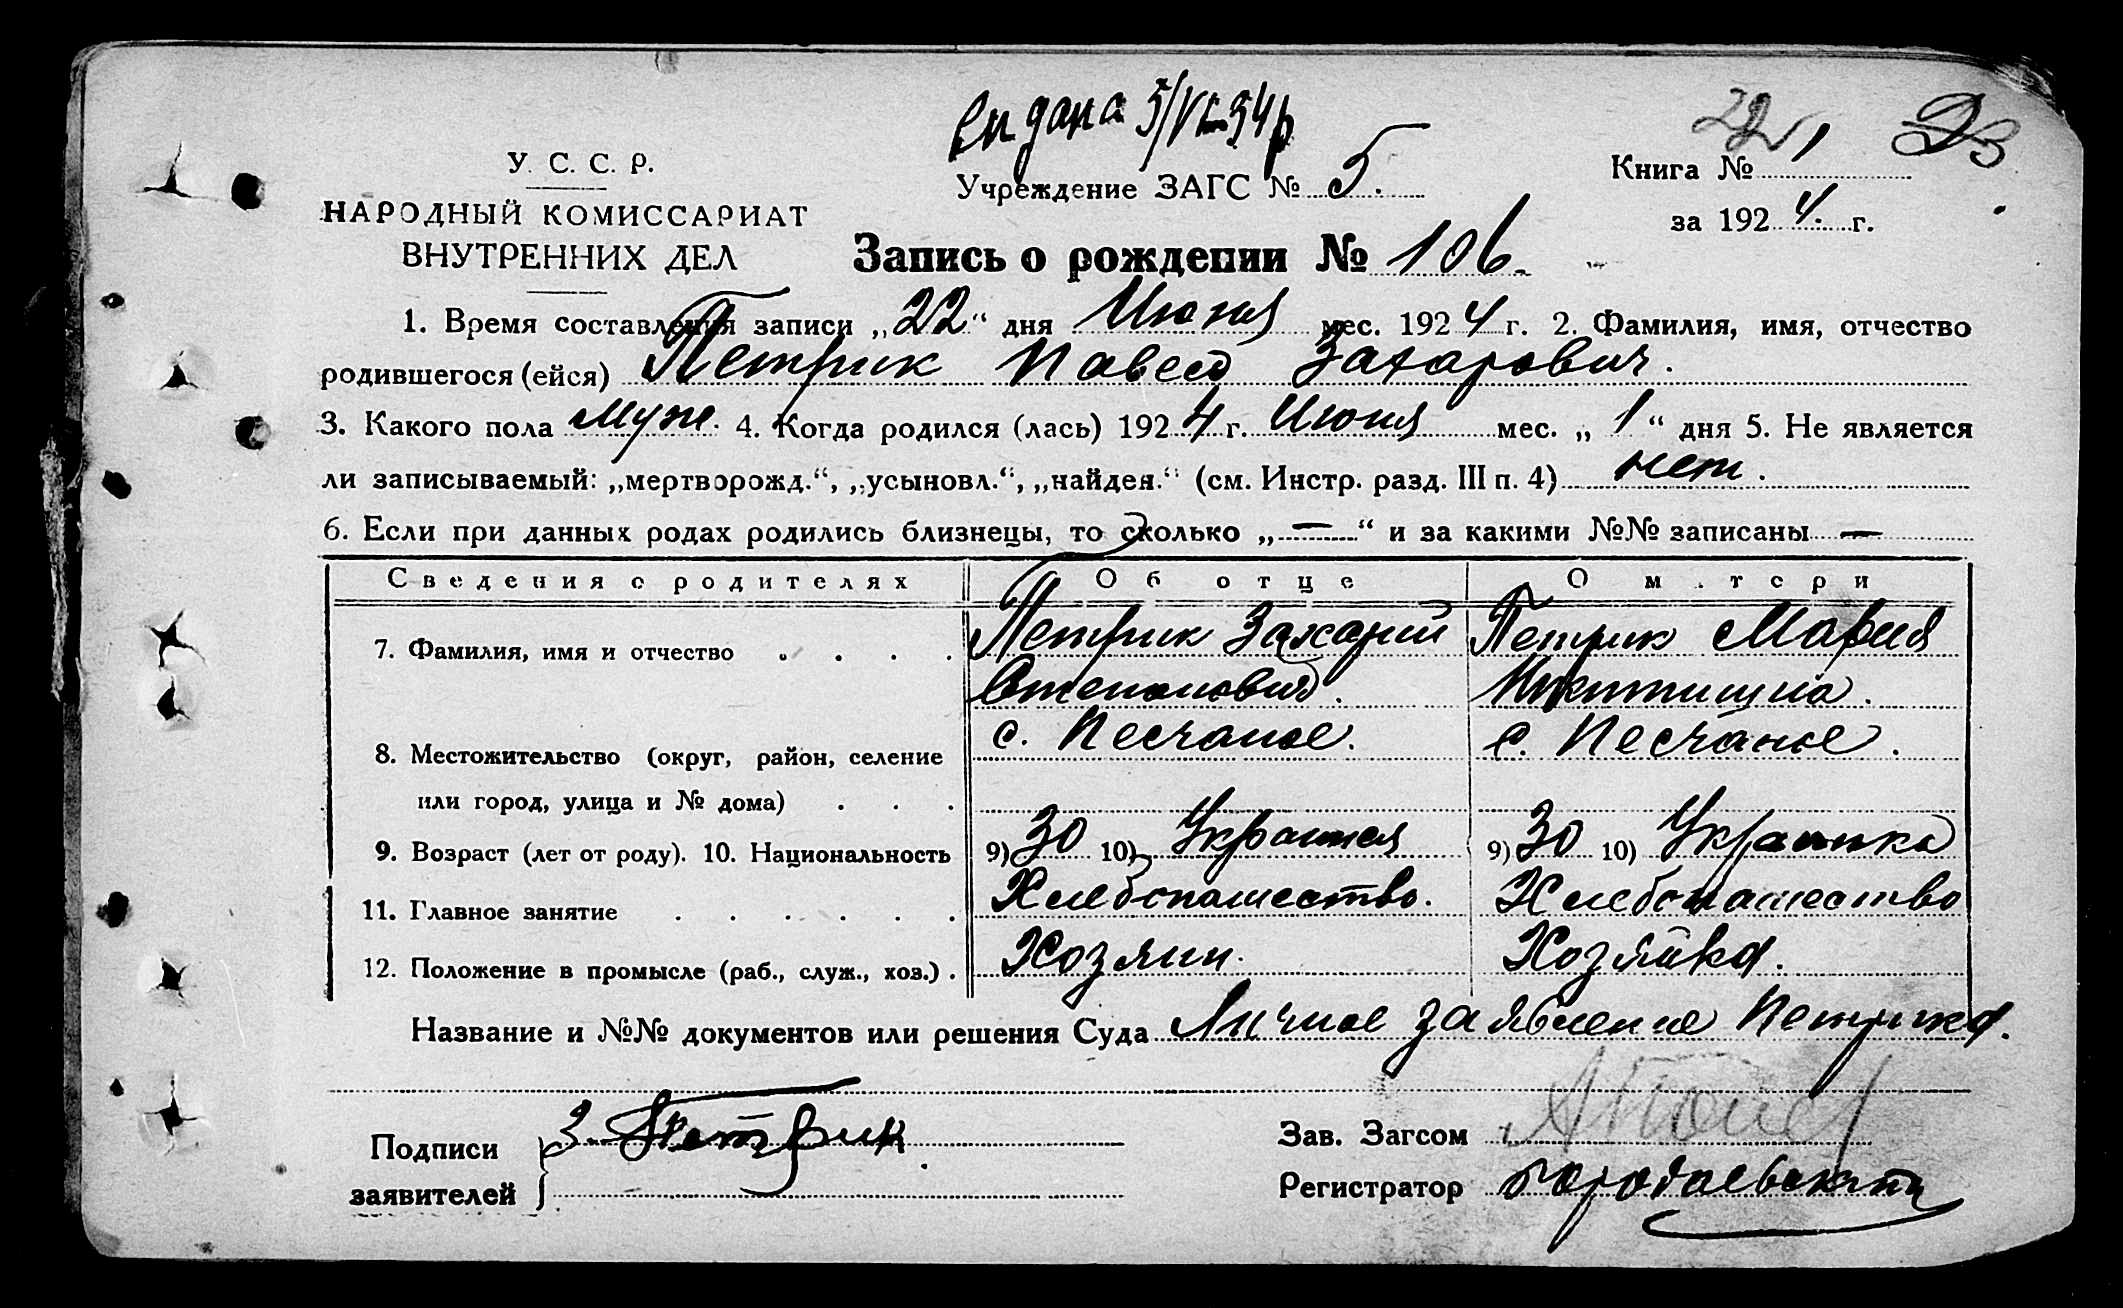 дана 5/VI-34р
22
23
У. С. С. Р.
НАРОДНЫЙ КОМИССАРИАТ
ВНУТРЕННИХ ДЕЛ
Учреждение ЗАГС № 5.
Книга № 1
за 1924 г.
Запись о рождении № 106
1. Время составления записи „22“ дня Июня мес. 1924 г. 2. Фамилия, имя, отчество
родившегося (ейся) Петрик Павел Захарович.
3. Какого пола муж. 4. Когда родился (лась) 1924 г. Июня мес. „1“ дня 5. Не является
ли записываемый: „мертворожд.“, „усыновл.“, „найден.“ (см. Инстр. разд. III п. 4) нет.
6. Если при данных родах родились близнецы, то сколько „—“ и за какими №№ записаны —
Сведения о родителях Об отце О матери
7. Фамилия, имя и отчество . . . . Петрик Захарий Петрик Мария
Степанович. Никитишна.
с. Песчаное. с. Песчаное.
8. Местожительство (округ, район, селение
или город, улица и № дома) . . .
9. Возраст (лет от роду). 10. Национальность 9) 30 10) Украинец 9) 30 10) Украинка
11. Главное занятие . . . . . . Хлебопашество. Хлебопашество
12. Положение в промысле (раб., служ., хоз.) . Хозяин. Хозяйка.
Название и №№ документов или решения Суда Личное заявление Петрика.
Подписи
заявителей
З. Петрик
Зав. Загсом
Регистратор